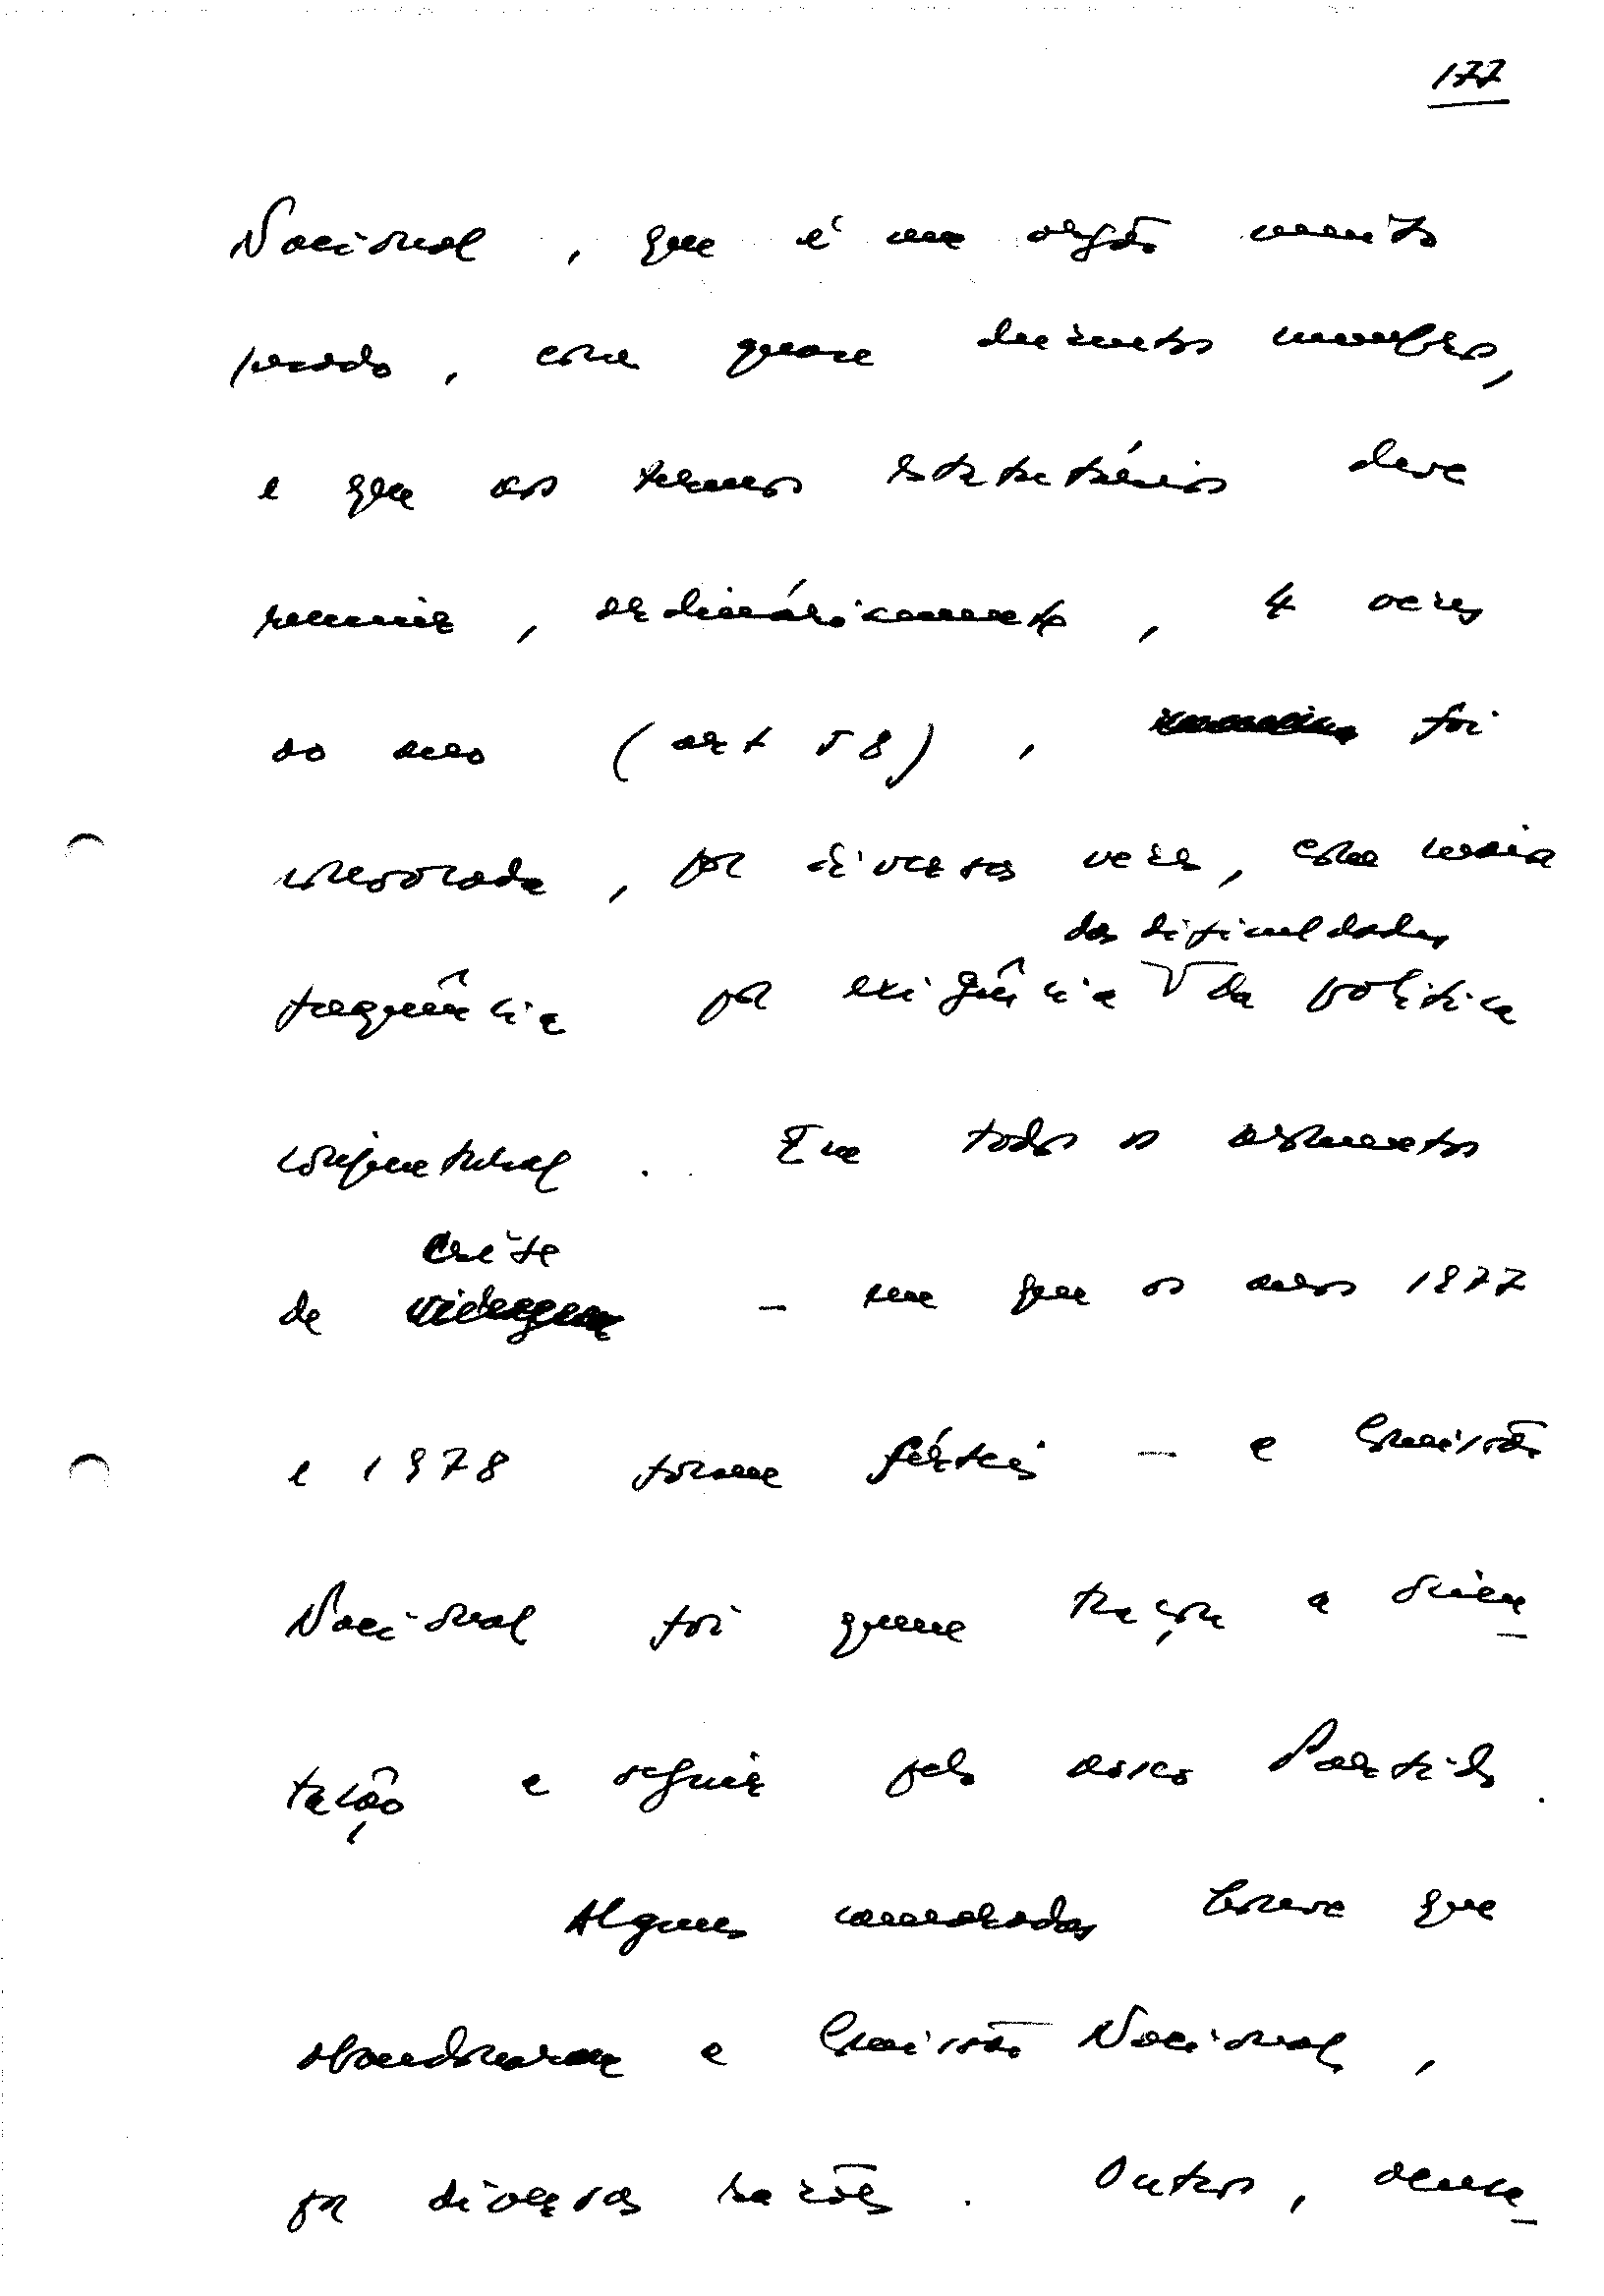 177
Nacional, que é um orgão muito
pesado, com quase duzentos membros,
e que nos termos estatutários deve
reunir, ordinariamente, 4 vezes
ao ano (art 58), foi
convocada, por diversas vezes, com maior
das dificuldades
frequência por exigência da política
conjuntural. Em todos os momentos
crise
de viragem – em que os anos 1977
e 1978 foram férteis – a Comissão
Nacional foi quem traçou a orien_
tação a seguir pelo nosso Partido.
Alguns camaradas houve que
abandonaram a Comissão Nacional,
por diversas razões. Outros,